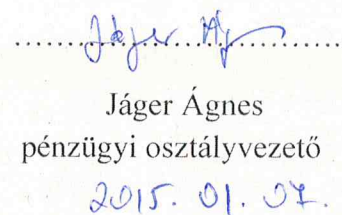 Jáger Ág
Jáger Ágnes
pénzügyi osztályvezető
2015. 01. 07.